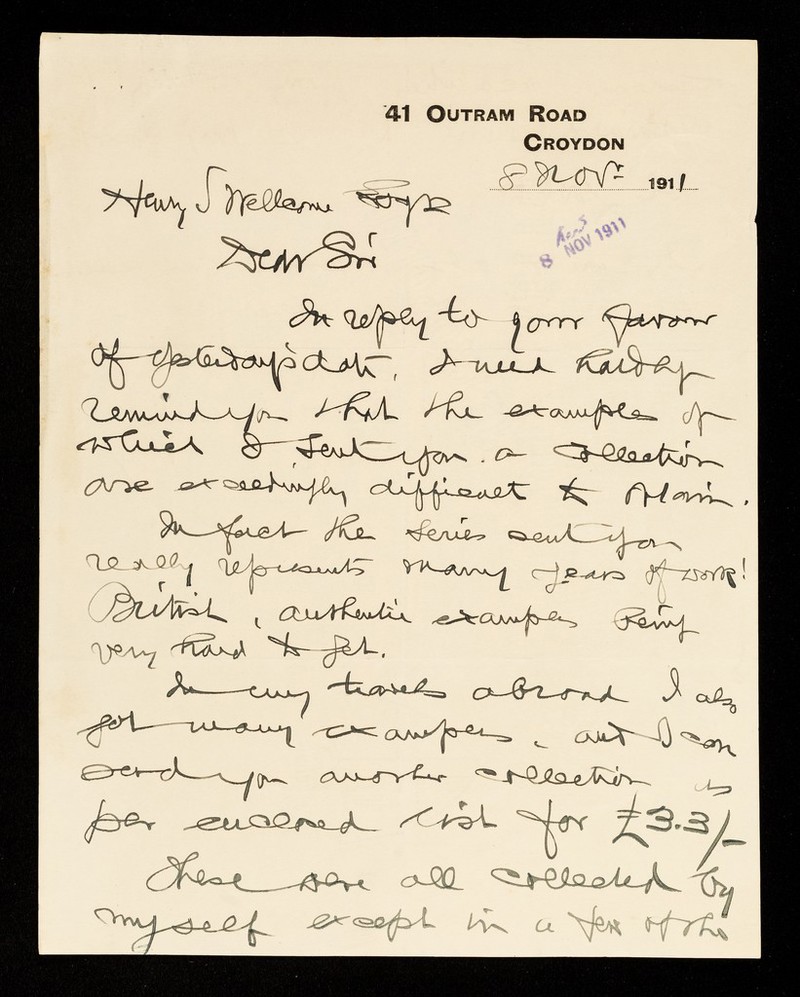 41 OUTRAM ROAD
CROYDON
8 Novr. 1911
Henry S Wellcome Esqre
8 NOV 1911
Dear Sir
In reply to your favour
of yesterday's date, I need hardly
remind you that the examples of
which I sent you a collection
are exceedingly difficult to obtain.
In fact the series sent you
really represents many years of work!
British, authentic examples being
very hard to get.
In my travels abroad I also
got many examples, and I can
send you another collection as
per enclosed list for £3.3/-
These were all collected by
myself except in a few of the